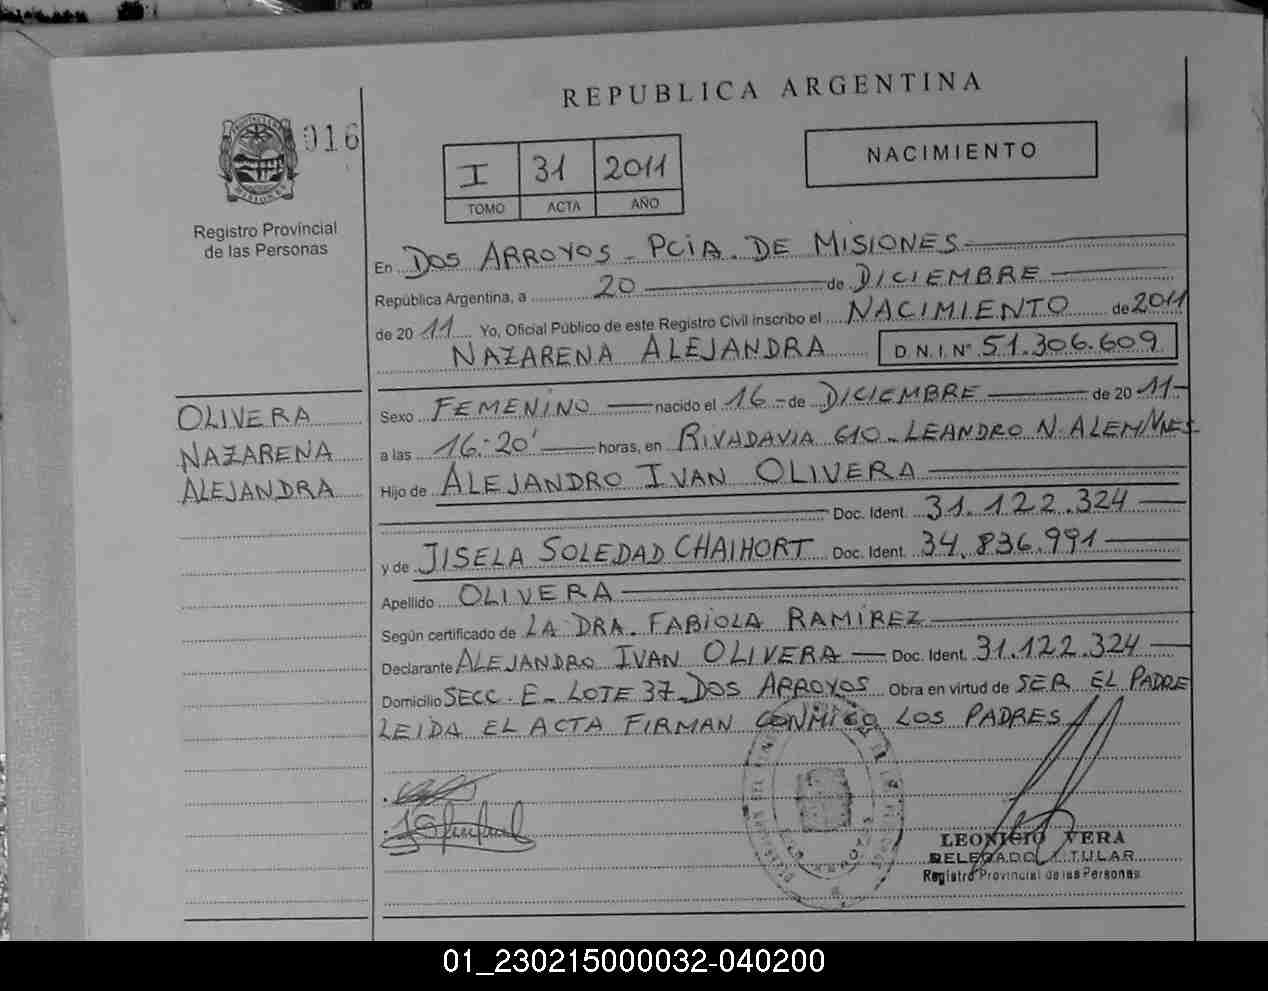 REPUBLICA ARGENTINA
016
I 31 2011
TOMO ACTA AÑO
NACIMIENTO
Registro Provincial
de las Personas
En DOS ARROYOS - PCIA. DE MISIONES
República Argentina, a 20 de DICIEMBRE
de 20 11 Yo, Oficial Público de este Registro Civil inscribo el NACIMIENTO de 2011
NAZARENA ALEJANDRA D.N.I. Nº 51.306.609
OLIVERA
NAZARENA
ALEJANDRA
Sexo FEMENINO nacido el 16 de DICIEMBRE de 20 11
a las 16:20' horas, en RIVADAVIA 610 - LEANDRO N. ALEM
Hijo de ALEJANDRO IVAN OLIVERA
Doc. Ident. 31.122.324
y de JISELA SOLEDAD CHAIHORT Doc. Ident. 34.836.991
Apellido OLIVERA
Según certificado de LA DRA. FABIOLA RAMIREZ
Declarante ALEJANDRO IVAN OLIVERA Doc. Ident. 31.122.324
Domicilio SECC. E - LOTE 37 - DOS ARROYOS Obra en virtud de SER EL PADRE
LEIDA EL ACTA FIRMAN CONMIGO LOS PADRES
LEONICIO VERA
DELEGADO TITULAR
Registro Provincial de las Personas
01_230215000032-040200